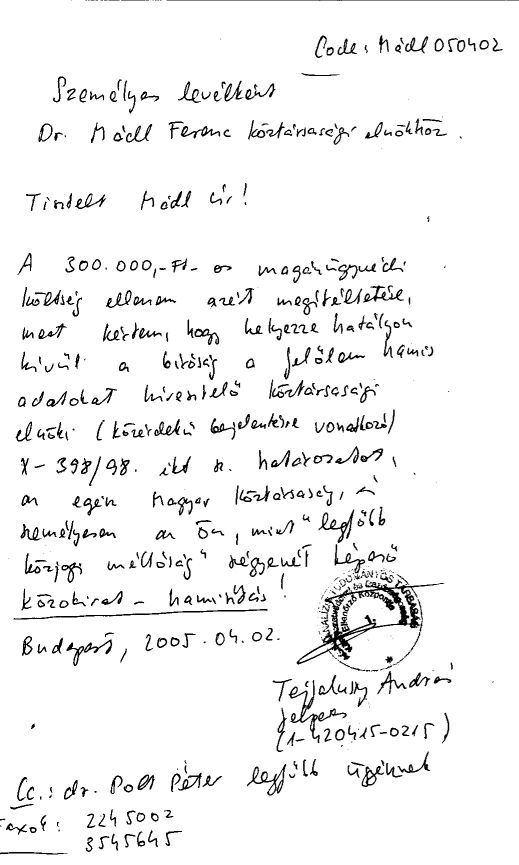 Code: Mádl050402
Személyes levélként
Dr. Mádl Ferenc köztársasági elnökhöz.
Tisztelt Mádl úr!
A 300.000,-Ft-os magánügyvédi
költség ellenem azért megítéltetése,
mert kértem, hogy helyezze hatályon
kívül a bíróság a felőlem hamis
adatokat híresztelő köztársasági
elnöki (közérdekű bejelentésre vonatkozó)
X-398/98. ikt sz. határozatot,
az egész Magyar Köztársaság, és
személyesen az Ön, mint "legfőbb
közjogi méltóság" szégyenét képező
közokirat-hamisítás!
Budapest, 2005.04.02.
1.
Tejfalussy András
felperes
(1-420415-0215)
Cc.: dr. Polt Péter legfőbb ügyésznek
2245002
3545645